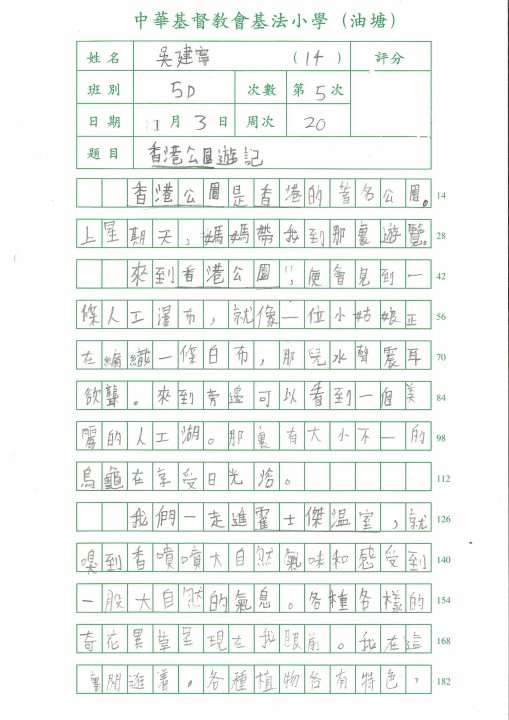 中華基督教會基法小學（油塘）
姓名 吳建寧 (14) 評分
班別 5D 次數 第5次
日期 11月3日 周次 20
題目 香港公園遊記
香港公園是香港的著名公園。 14
上星期天，媽媽帶我到那裏遊覽。 28
來到香港公園，便會見到一 42
條人工瀑布，就像一位小姑娘正 56
在編織一條白布，那兒水聲震耳 70
欲聾。來到旁邊可以看到一個美 84
麗的人工湖。那裏有大小不一的 98
烏龜在享受日光浴。 112
我們一走進霍士傑溫室，就 126
嗅到香噴噴大自然氣味和感受到 140
一股大自然的氣息。各種各樣的 154
奇花異草呈現在我眼前。我在這 168
裏閒逛着。各種植物各有特色， 182